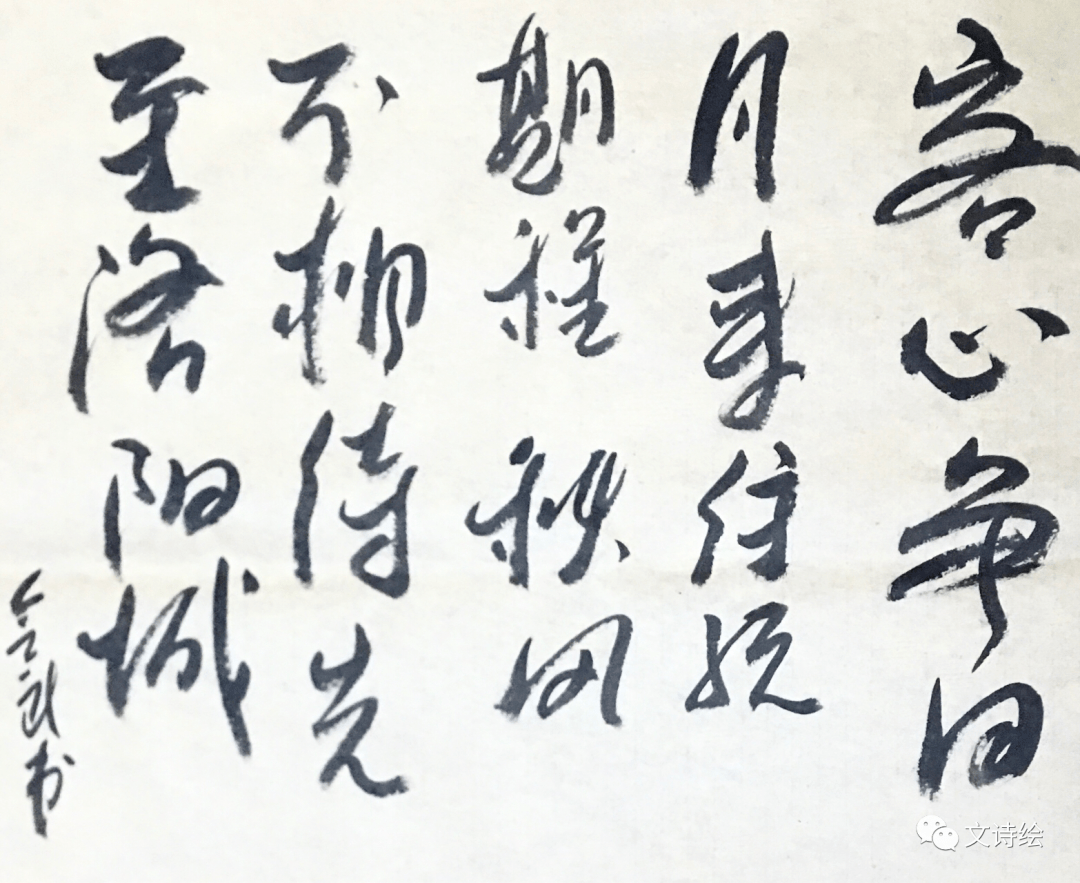 客心争日
月来往预
期程秋风
不相待先
至洛阳城
武书
文诗绘